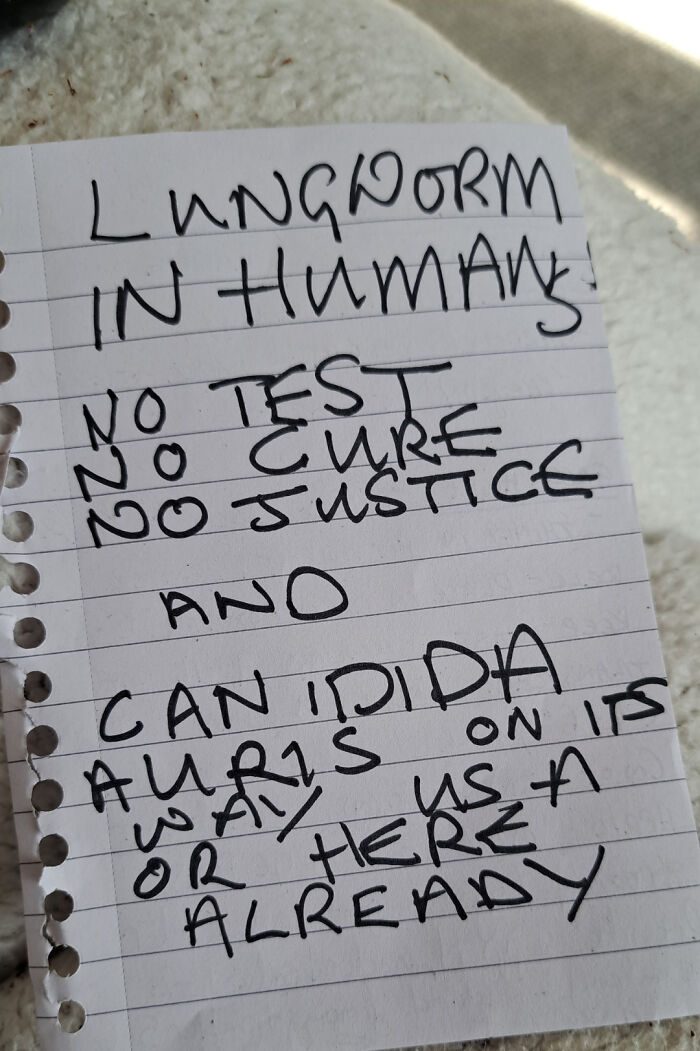 LUNGWORM
IN HUMANS!
NO TEST
NO CURE
NO JUSTICE
AND
CANIDIDA
AURIS ON ITS
WAY USA
OR HERE
ALREADY